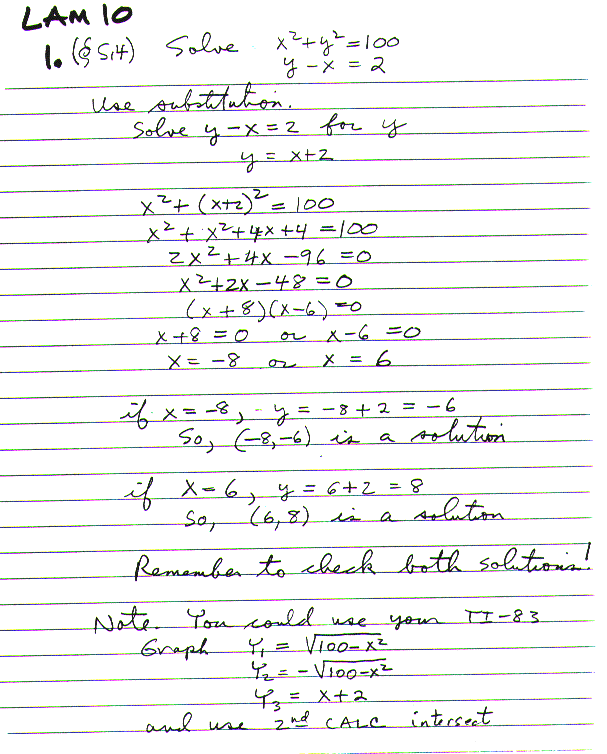 LAM 10
1. (§ 5.4) Solve x²+y²=100
y-x = 2
Use substitution.
Solve y-x=2 for y
y = x+2
x²+(x+2)² = 100
x²+x²+4x+4 = 100
2x²+4x-96 = 0
x²+2x-48 = 0
(x+8)(x-6) = 0
x+8 = 0 or x-6 = 0
x = -8 or x = 6
if x = -8, y = -8+2 = -6
So, (-8,-6) is a solution
if x = 6, y = 6+2 = 8
So, (6,8) is a solution
Remember to check both solutions!
Note. You could use your TI-83
Graph Y₁ = √100-x²
Y₂ = -√100-x²
Y₃ = x+2
and use 2nd CALC intersect